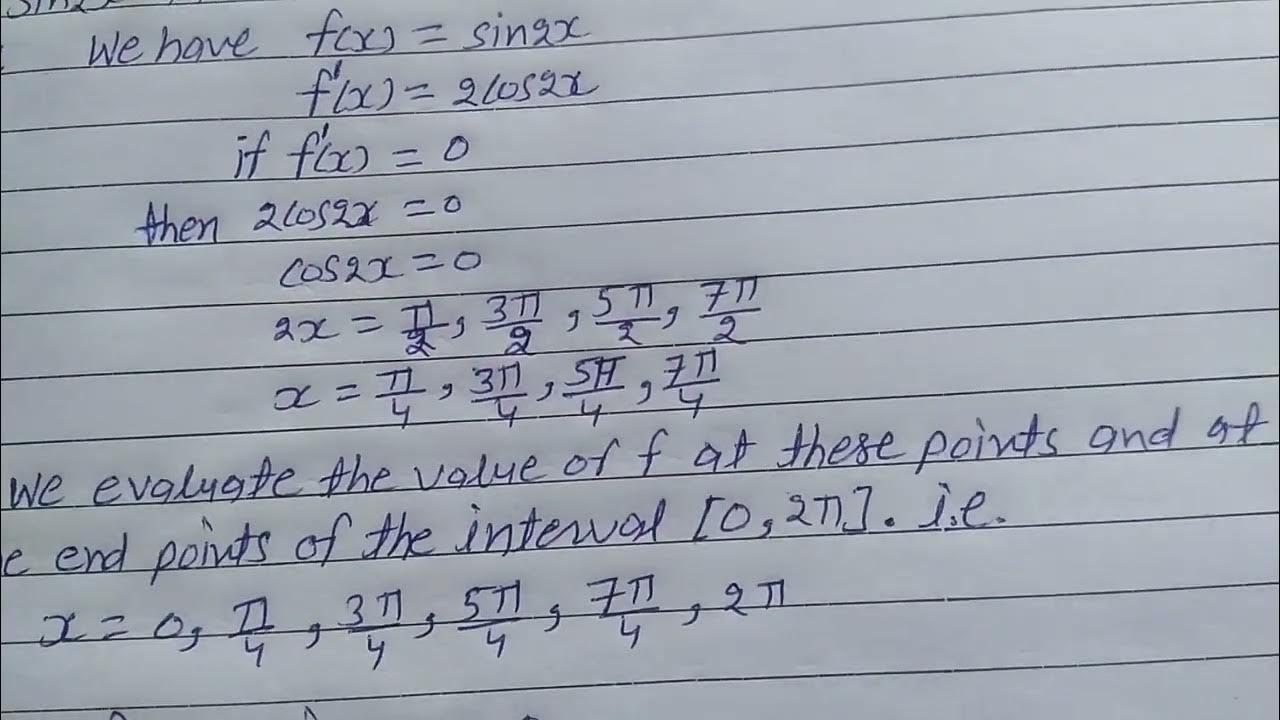 We have f(x) = sin2x
f'(x) = 2cos2x
if f'(x) = 0
then 2cos2x = 0
cos2x = 0
2x = π/2, 3π/2, 5π/2, 7π/2
x = π/4, 3π/4, 5π/4, 7π/4
We evaluate the value of f at these points and at
e end points of the interval [0, 2π]. i.e.
x = 0, π/4, 3π/4, 5π/4, 7π/4, 2π